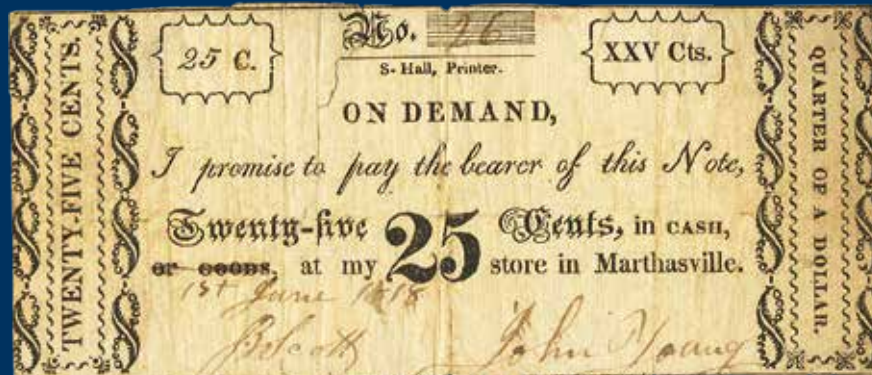 TWENTY-FIVE CENTS.
25 C.
No. 26
S. Hall, Printer.
XXV Cts.
ON DEMAND,
I promise to pay the bearer of this Note,
Twenty-five 25 Cents, in CASH,
or GOODS, at my store in Marthasville.
1st June 1818
John Young
QUARTER OF A DOLLAR.